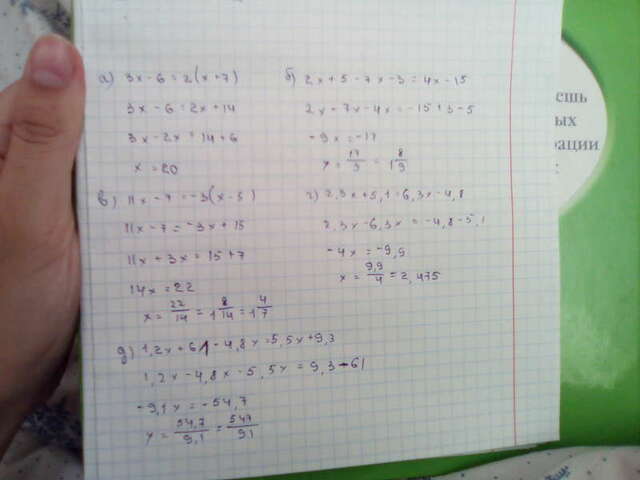 а) 3x-6=2(x+7)
3x-6=2x+14
3x-2x=14+6
x=20
б) 2x+5-7x-3=4x-15
2x-7x-4x=-15+3-5
-9x=-17
x=17/9=1 8/9
в) 11x-7=-3(x-5)
11x-7=-3x+15
11x+3x=15+7
14x=22
x=22/14=1 8/14=1 4/7
г) 2,3x+5,1=6,3x-4,8
2,3x-6,3x=-4,8-5,1
-4x=-9,9
x=9,9/4=2,475
д) 1,2x+61-4,8x=5,5x+9,3
1,2x-4,8x-5,5x=9,3-61
-9,1x=-54,7
x=54,7/9,1=547/91
ешь
ых
рации